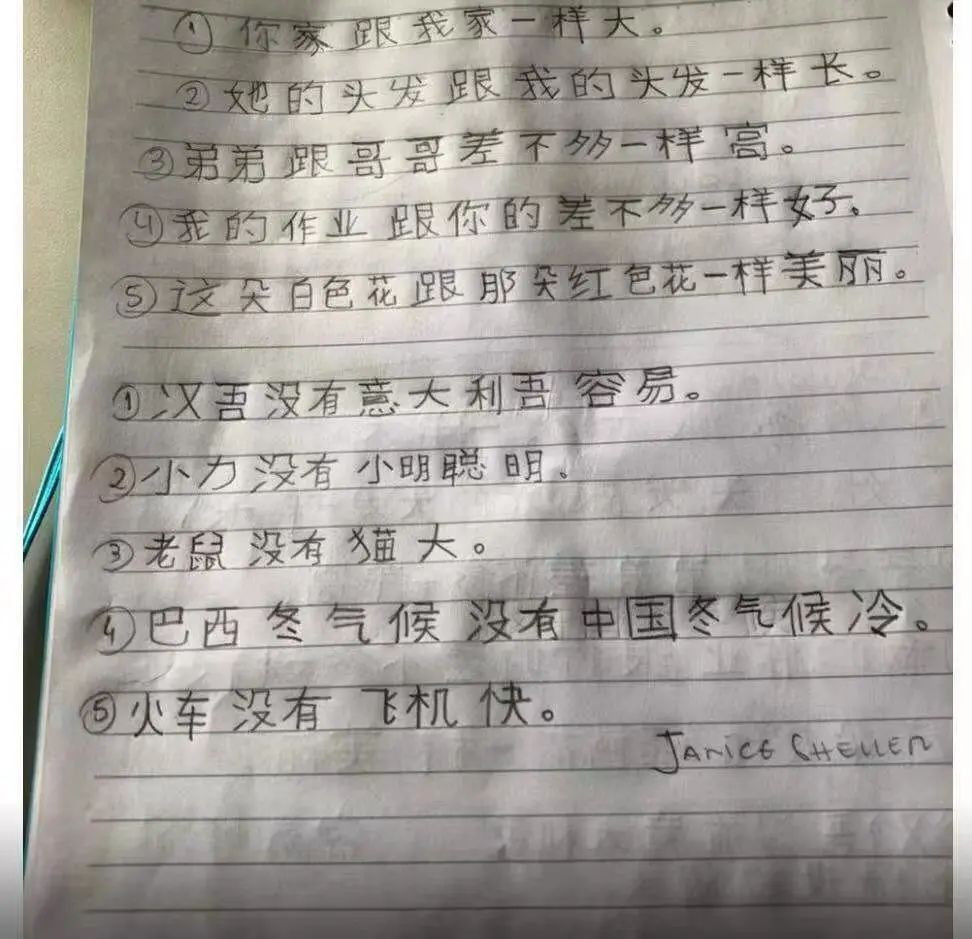 ① 你家跟我家一样大。
② 她的头发跟我的头发一样长。
③ 弟弟跟哥哥差不多一样高。
④ 我的作业跟你的差不多一样好。
⑤ 这朵白色花跟那朵红色花一样美丽。
① 汉吾没有意大利吾容易。
② 小力没有小明聪明。
③ 老鼠没有猫大。
④ 巴西冬气候没有中国冬气候冷。
⑤ 火车没有飞机快。
JANICE SHELLEN